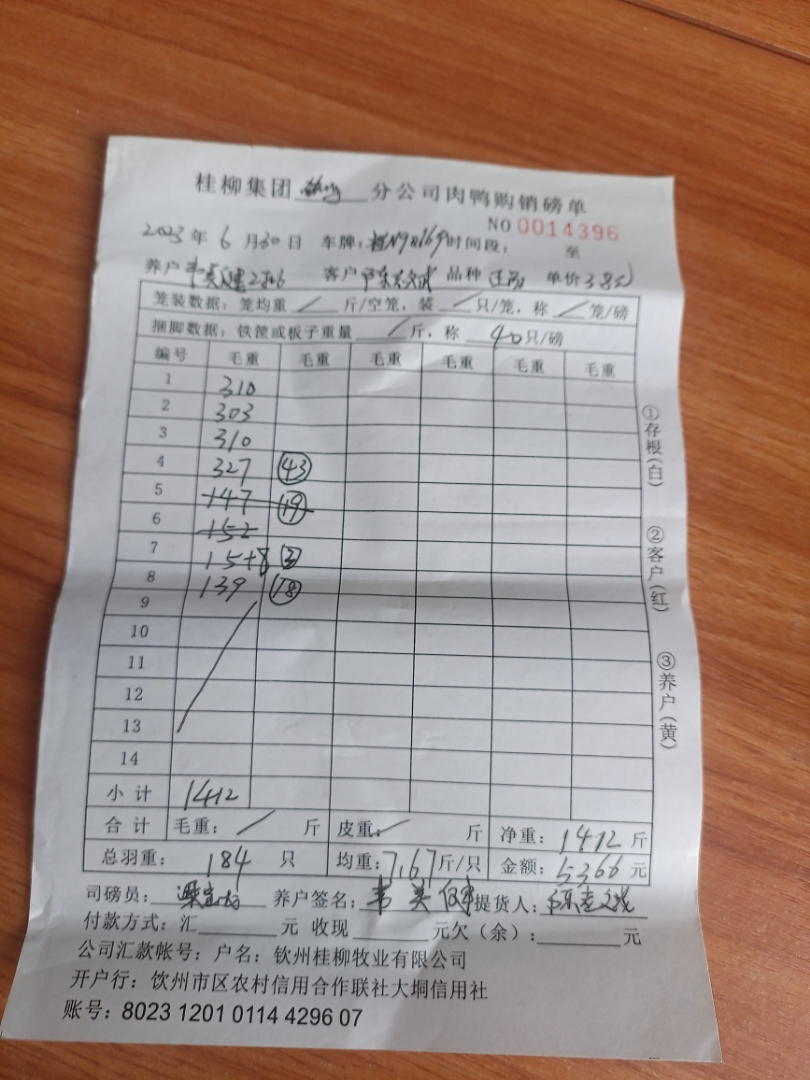 桂柳集团 分公司肉鸭购销磅单
NO 0014396
2023年 6 月30日 车牌: 时间段: 至
养户 客户 品种 单价3.8元
笼装数据: 笼均重 / 斤/空笼, 装 / 只/笼, 称 / 笼/磅
捆脚数据: 铁筐或板子重量 / 斤, 称 40只/磅
编号 毛重 毛重 毛重 毛重 毛重 毛重
1 310
2 303
3 310
4 327 43
5 147 19
6 152
7 15+8 3
8 139 18
9
10
11
12
13
14
小 计 1412
合 计 毛重: / 斤 皮重: / 斤 净重: 1412 斤
总羽重: 184 只 均重: 7.67斤/只 金额: 5366 元
司磅员: 养户签名: 韦英 提货人:
付款方式: 汇 元 收现 元欠(余): 元
公司汇款帐号: 户名: 钦州桂柳牧业有限公司
开户行: 钦州市区农村信用合作联社大垌信用社
账号: 8023 1201 0114 4296 07
①存根(白)
②客户(红)
③养户(黄)